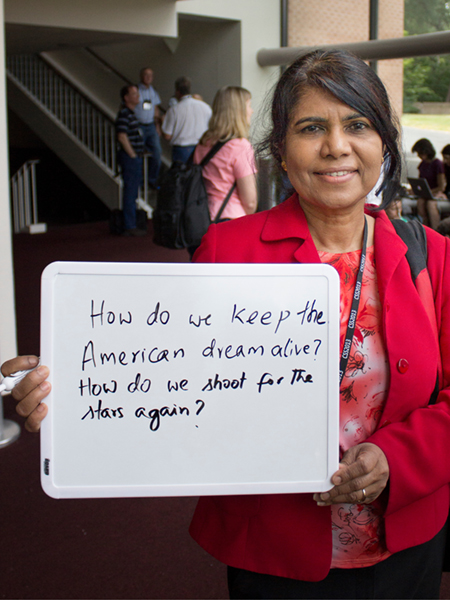 How do we keep the
American dream alive?
How do we shoot for the
stars again?